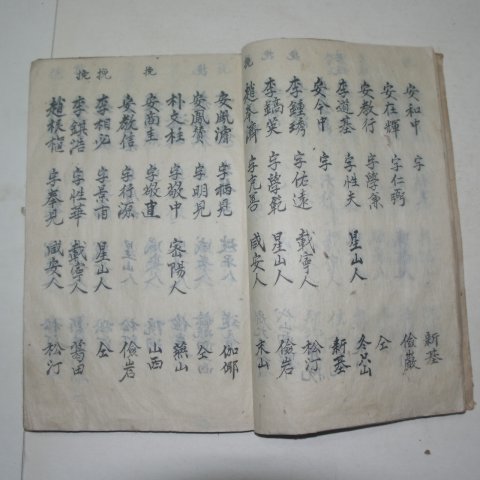 安和中 字 新基
安在輝 字仁 儉巖
安教行 字學兼 仝
李道基 字性夫 星山人 冬只山
安令中 字 新基
李鍾琇 字佑遠 載寧人 松汀
李鎬英 字學範 星山人 儉岩
趙 濟 字克善 咸安人 末山
安鳳濬 字栢見 伽倻
安鳳贊 字明見 仝
挽 朴文柱 字敬中 密陽人 藥山
安尚圭 字敬建 山西
安教信 字行源 儉岩
挽 李相必 字景甫 星山人 仝
挽 李鉄浩 字性華 載寧人 葛田
趙根 字奉見 咸安人 松汀